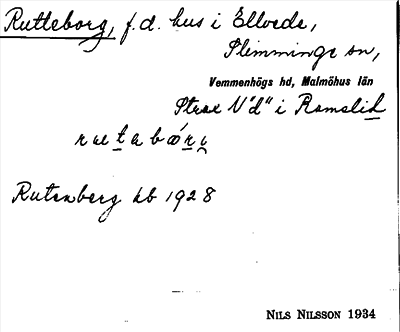 Rutteborg, f.d. hus i Ellvede,
Slimminge sn,
Vemmenhögs hd, Malmöhus län
Strax V "d" i Romslid
Rutenberg kb 1928
NILS NILSSON 1934